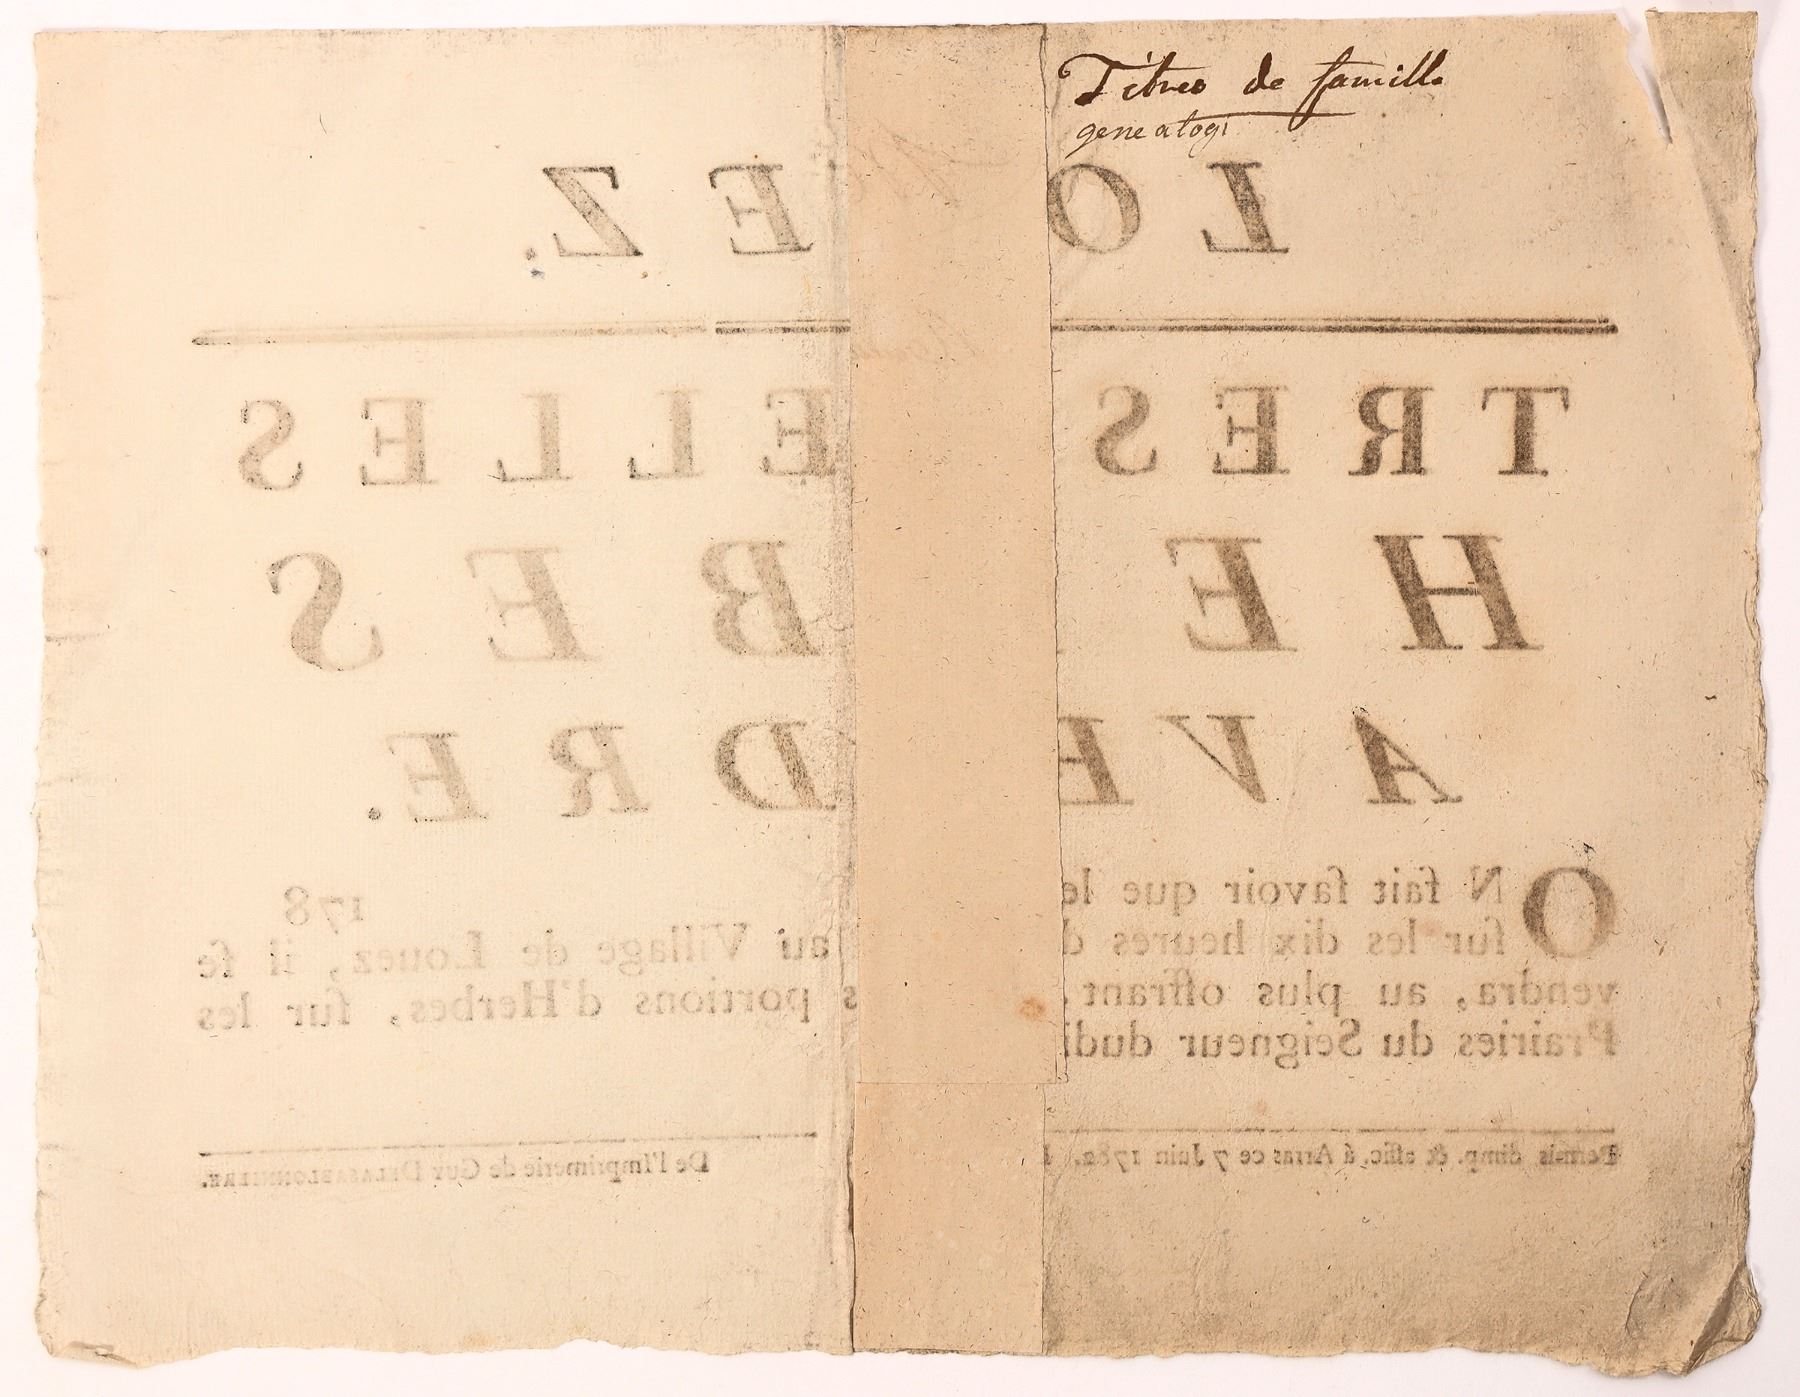 Titres de famille
genealogi
LO EZ.
TRES ELLES
HE BES
AVE DRE.
ON fait ſavoir que le 178
ſur les dix heures d au Village de Louez, il ſe
vendra, au plus offrant s portions d'Herbes, ſur les
Prairies du Seigneur dudi
Permis dimp. & affic. á Arras ce 7 Juin 1782. De l'Imprimerie de Guy Delasablonniere.